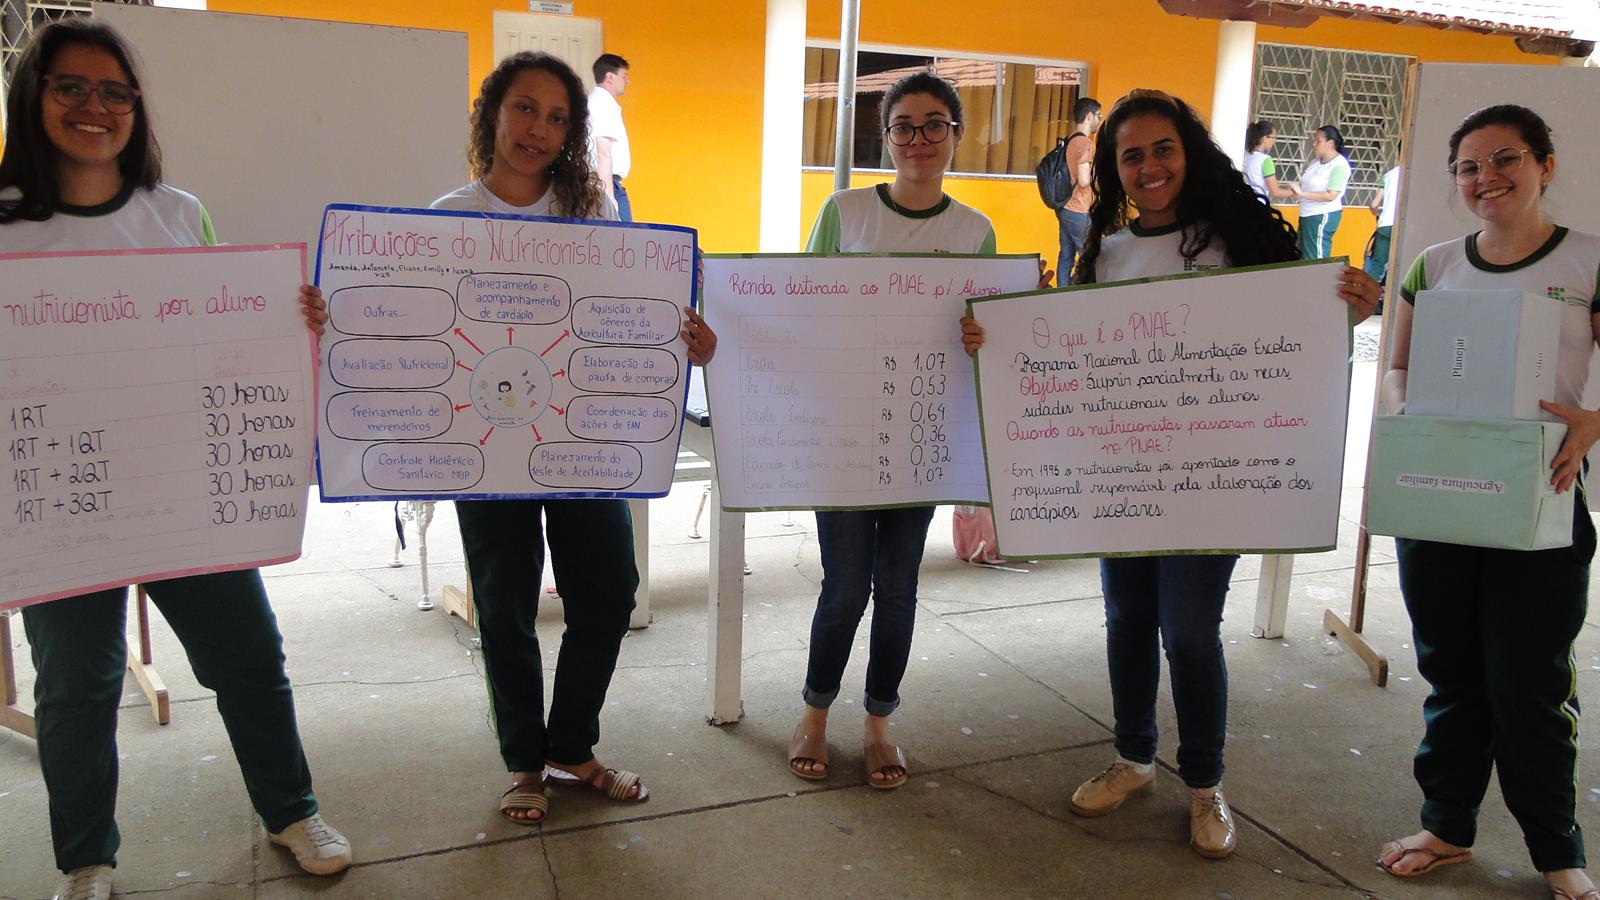 nutricionista por aluno
30 horas
1RT 30 horas
1RT + 1QT 30 horas
1RT + 2QT 30 horas
1RT + 3QT 30 horas
Atribuições do Nutricionista do PNAE
Amanda, Antoniele, Eliane, Emilly e Luana
Planejamento e
acompanhamento
de cardápio
Outras...
Aquisição de
gêneros da
Agricultura Familiar
Avaliação Nutricional
Elaboração da
pauta de compras
Treinamento de
merendeiros
Coordenação das
ações de EAN
Controle Higiênico
Sanitário MBP
Planejamento do
teste de Aceitabilidade
Renda destinada ao PNAE p/ Alunos
Instituições
R$ 1,07
Pré Escola R$ 0,53
Escola Indígena R$ 0,64
Escola Fundamental e Médio R$ 0,36
Educação de Jovens e Adultos R$ 0,32
Ensino Integral R$ 1,07
O que é o PNAE?
Programa Nacional de Alimentação Escolar
Objetivo: Suprir parcialmente as neces_
sidades nutricionais dos alunos.
Quando as nutricionistas passaram atuar
no PNAE?
Em 1995 o nutricionista foi apontado como o
profissional responsável pela elaboração dos
cardápios escolares.
Planejar
Agricultura familiar